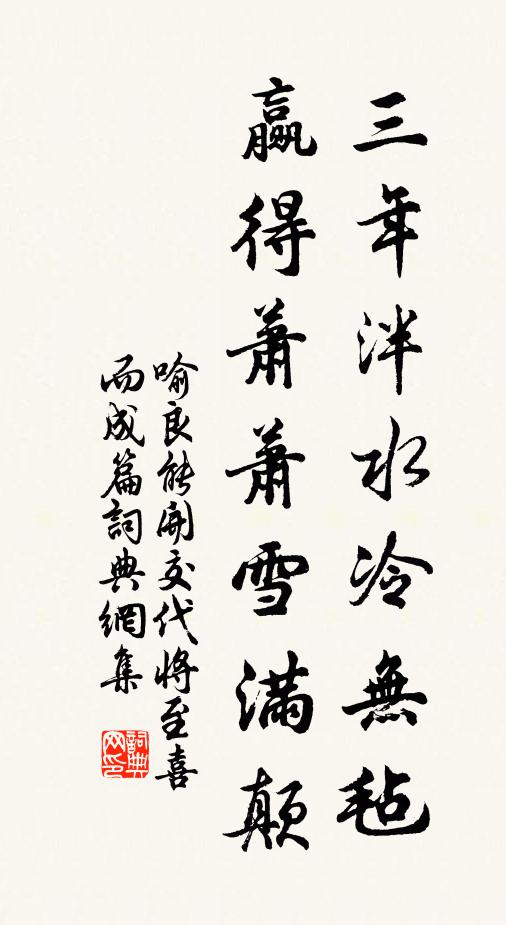 三年泮水冷無毡
贏得蕭蕭雪滿顛
喻良能聞交代將至喜
而成篇詞典網集
詞典
网印